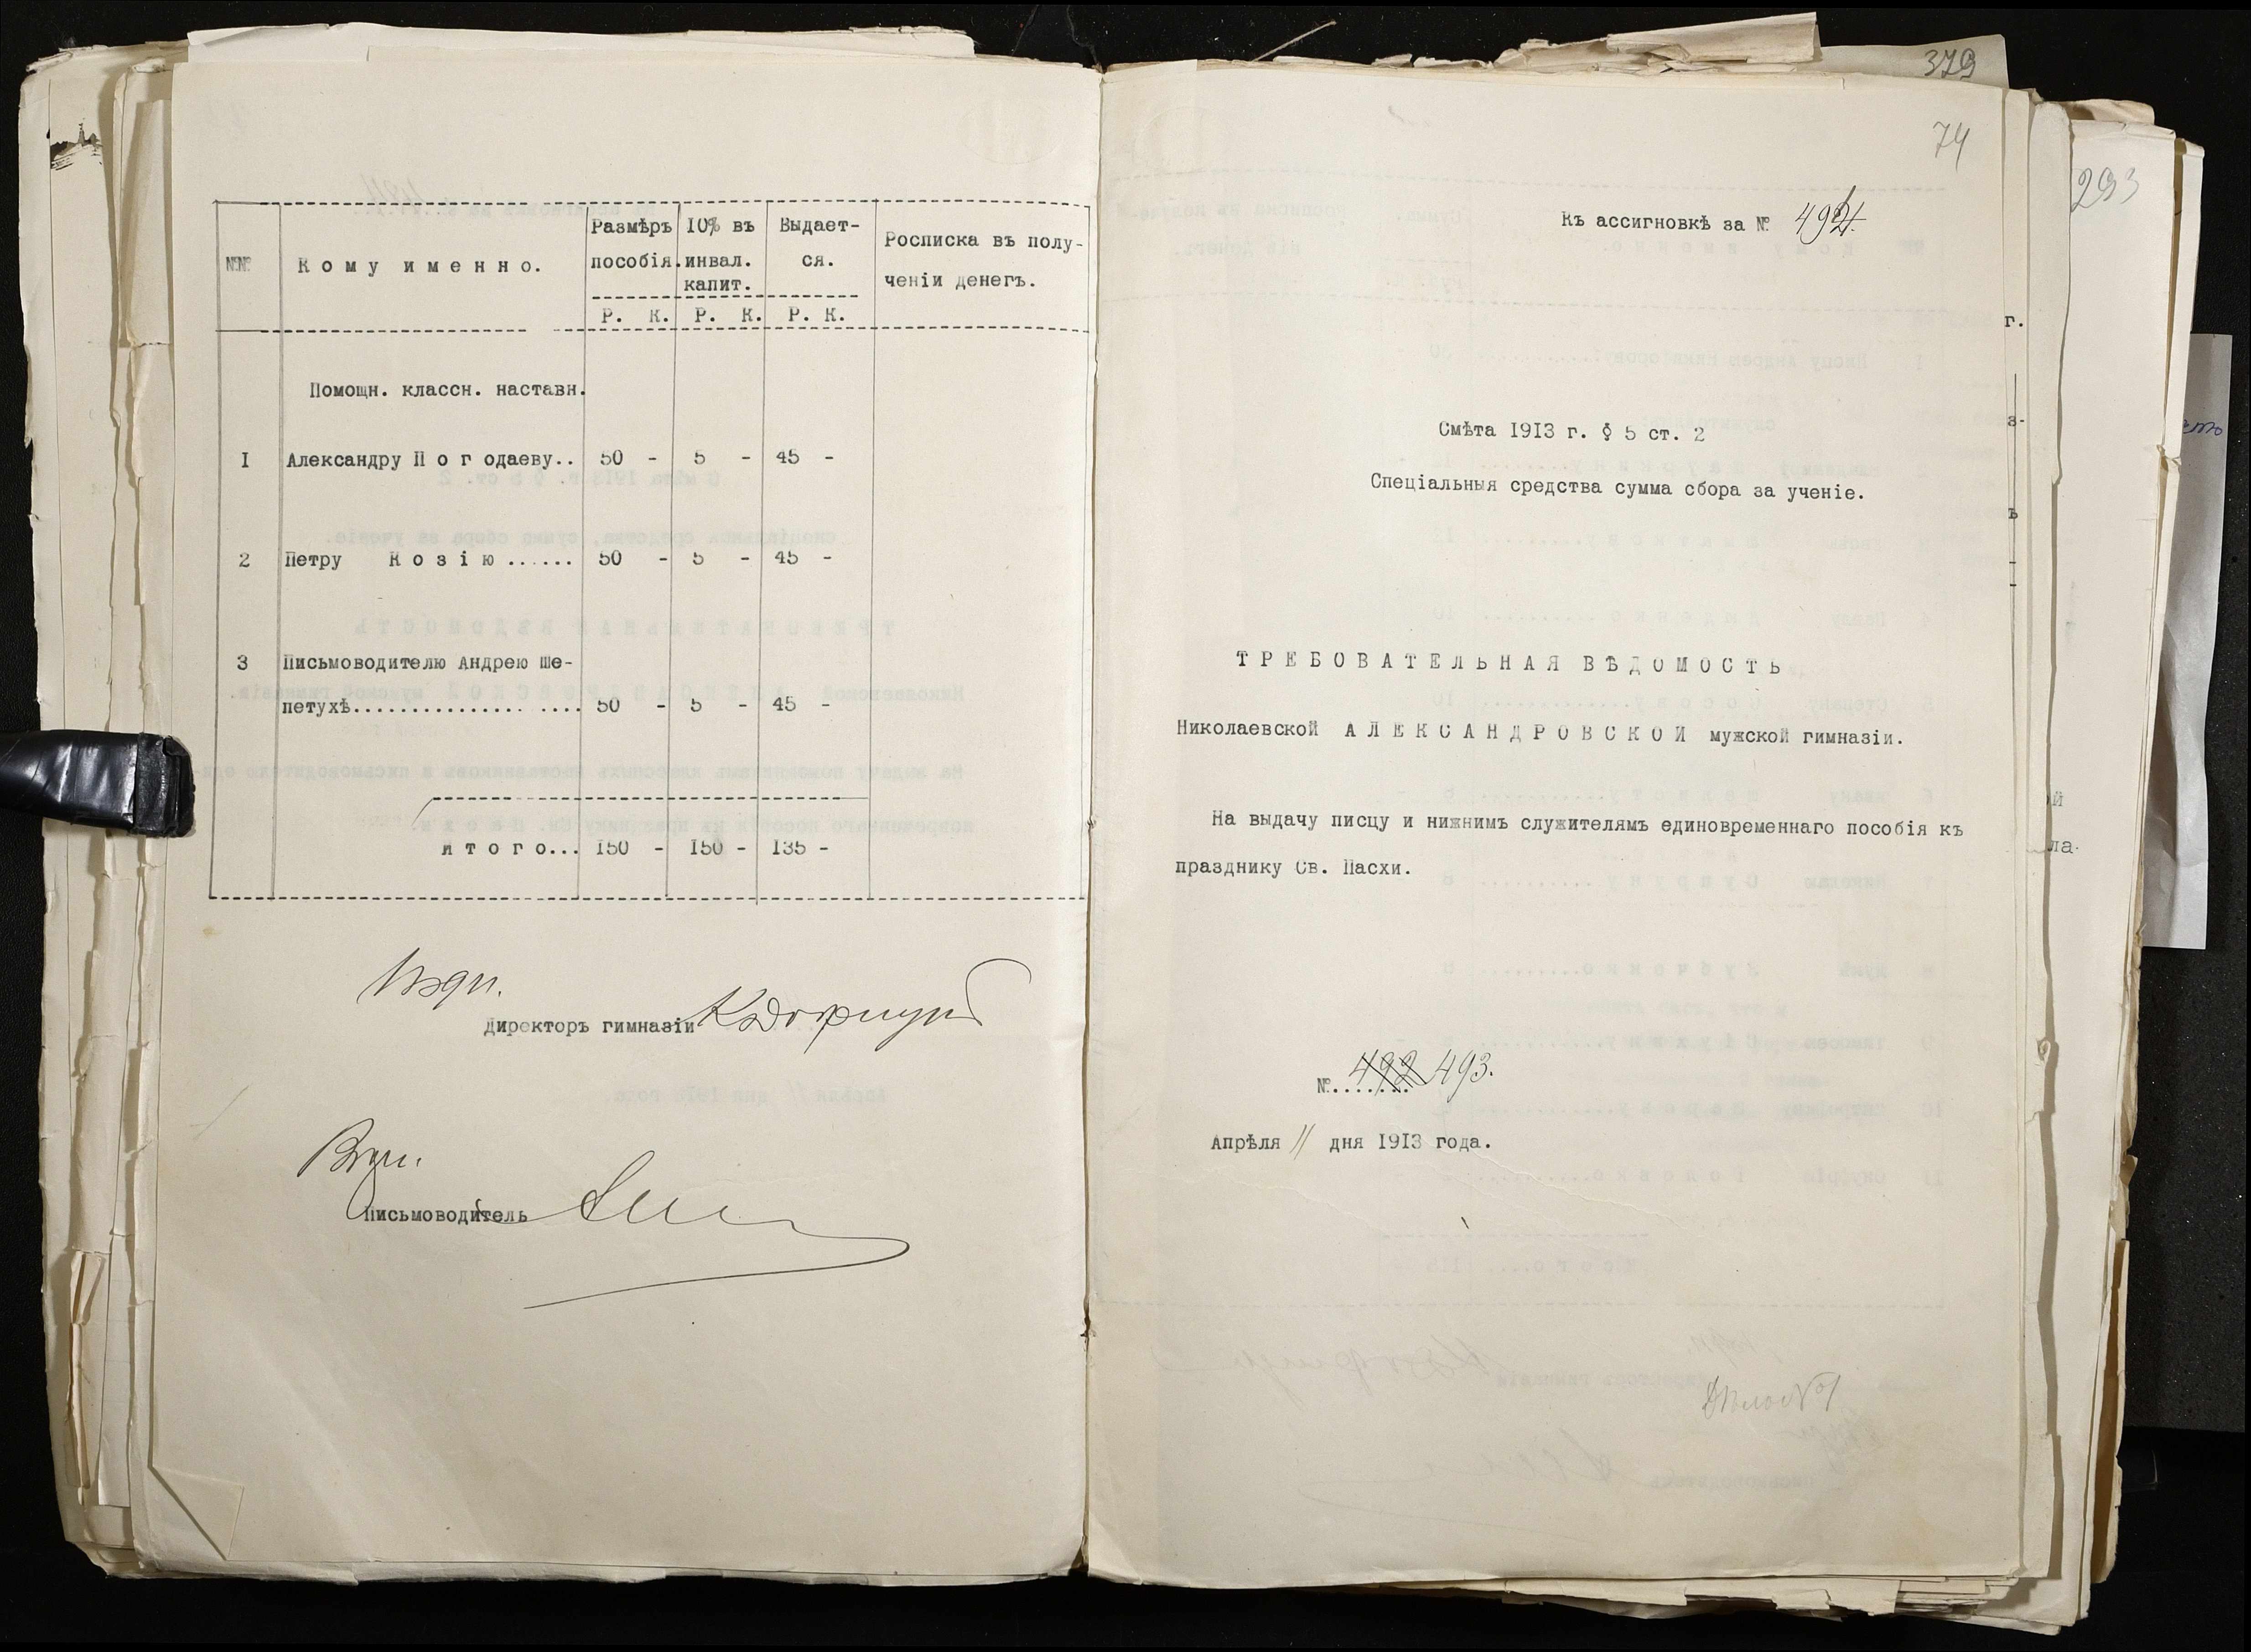 №№
Кому именно.
Размѣръ пособія.
10% въ инвал. капит.
Выдает-
ся.
Росписка въ полу-
ченіи денегъ.
Р. К. Р. К. Р. К.
Помощн. классн. наставн.
1 Александру Погодаеву.. 50 - 5 - 45 -
2 Петру Козію...... 50 - 5 - 45 -
3 Письмоводителю Андрею Ше-
петухѣ................... 50 - 5 - 45 -
Итого... 150 - 150 - 135 -
Директоръ гимназіи
Письмоводитель
379
74
293
Къ ассигновкѣ за № 494.
Смѣта 1913 г. § 5 ст. 2
Спеціальныя средства сумма сбора за ученіе.
ТРЕБОВАТЕЛЬНАЯ ВѢДОМОСТЬ
Николаевской АЛЕКСАНДРОВСКОЙ мужской гимназіи.
На выдачу писцу и нижнимъ служителямъ единовременнаго пособія къ
празднику Св. Пасхи.
№....... 492 493.
Апрѣля 11 дня 1913 года.